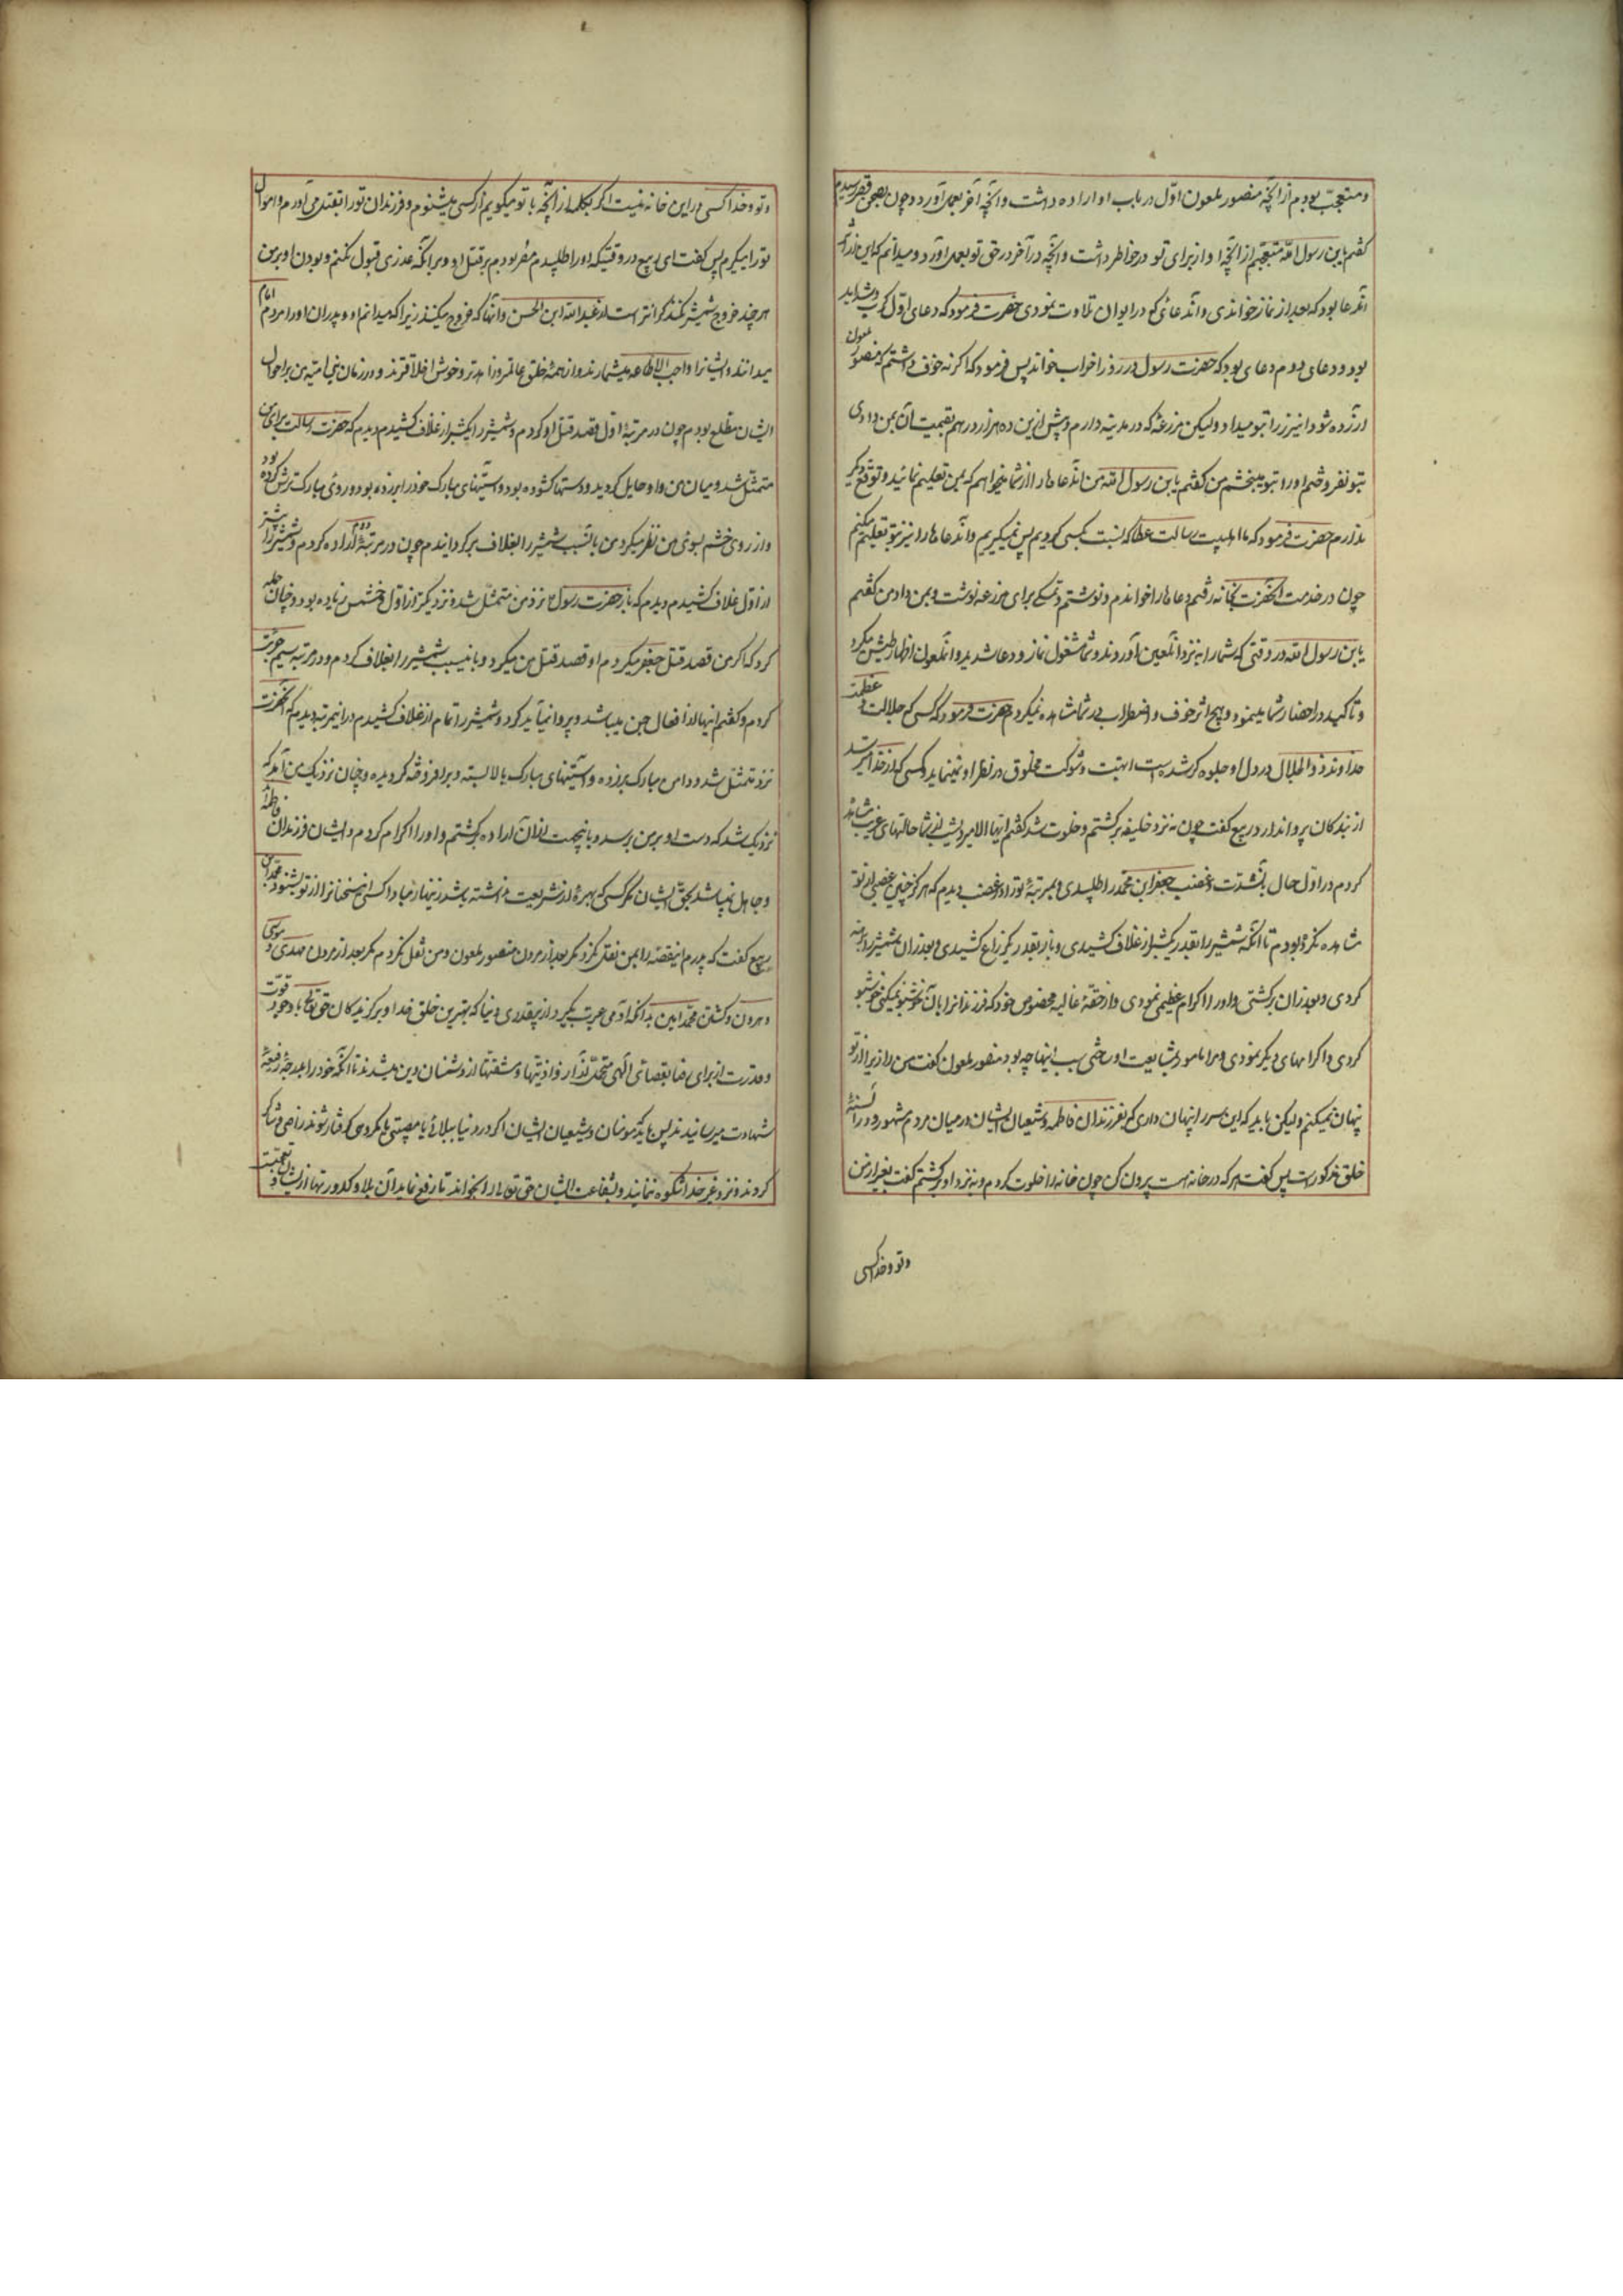 و متعجب بودم از آنچه منصور ملعون اول در باب او اراده داشت و آنچه آخر بعمل آورد و چون بصحن قصر رسیدم
گفتم یابن رسول الله متعجبم از آنچه او از برای تو در خاطر داشت و آنچه در آخر در حق تو بعمل آورد و میدانم که این اثر آن
آندعا بود که بعد از نماز خواندی و آندعائی که در ایوان تلاوت نمودی حضرت فرمود که دعای اول کرب و شداید
بود و دعای دوم دعای بود که حضرت رسول در روز احزاب خواند پس فرمود که اگر نه خوف داشتم که منصور ملعون
آزرده شود اینزر را بتو میدادم ولیکن مزرعه که در مدینه دارم و پیش ازین ده هزار درهم بقیمت آن بمن دادی
بتو نفروختم او را بتو میبخشم من گفتم یابن رسول الله من آندعاها را از شما میخواهم که بمن تعلیم نمائید و توقع دیگر
ندارم حضرت فرمود که ما اهلبیت رسالت عطا که نسبت بکسی کردیم پس نمیگیریم و آندعاها را نیز بتو تعلیم میکنم
چون در خدمت آنحضرت بخانه رفتم دعاها را خواندم و نوشتم و تمسکی برای مزرعه نوشت و بمن داد من گفتم
یابن رسول الله در وقتی که شما را به نزد آنلعین آوردند و شما مشغول نماز و دعا شدید و آنملعون اظهار طیش میکرد
و تاکید در احضار شما مینمود و هیچ اثر خوف و اضطراب در شما مشاهده نمیکردم حضرت فرمود که کسی که جلالت و عظمت
خداوند ذوالجلال در دل او جلوه گر شده است ابهت و شوکت مخلوق در نظر او نمینماید و کسی که از خدا میترسد
از بندگان پروا ندارد ربیع گفت چون به نزد خلیفه برگشتم و خلوت شد گفتم ایها الامیر دیشب از شما حالتهای غریب مشاهده
کردم در اول حال با آنشدت و غضب جعفر ابن محمد را طلبیدی و بمرتبهٔ تو را در غضب دیدم که هرگز چنین غضبی از تو
مشاهده نکرده بودم تا آنکه شمشیر را بقدر یکشبر از غلاف کشیدی و باز بقدر یکذراع کشیدی و بعد از آن شمشیر را برهنه
کردی و بعد از آن برگشتی و او را اکرام عظیم نمودی و از حقهٔ غالیه مخصوص خود که فرزندانرا بآن خوشبو نمیکنی خوشبو
کردی و اکرامهای دیگر نمودی و مرا مامور بمشایعت او ساختی سبب اینها چه بود منصور ملعون گفت من راز را از تو
پنهان نمیکنم ولیکن باید که این سر را پنهان داری که بفرزندان فاطمه و شیعیان ایشان در میان مردم مشهور و در السنهٔ
خلق مذکور است پس گفت هر که در خانه هست بیرون کن چون خانه را خلوت کردم و به نزد او برگشتم گفت بغیر از من
و تو و خدا کسی
و تو و خدا کسی در این خانه نیست اگر یککلمه از آنچه با تو میگویم از کسی بشنوم و فرزندان تو را بقتل می آورم و اموال
تو را میگیرم پس گفت ای ربیع در وقتیکه او را طلبیدم مصر بودم بر قتل او و بر آنکه عذری قبول نکنم و بودن او بر من
هر چند خروج بشمشیر نکند گرانتر است از عبدالله ابن الحسن و آنها که خروج میکنند زیرا که میدانم او و پدران او را مردم امام
میدانند و ایشانرا واجب الاطاعه میشمارند و از همهٔ خلق عالمتر و زاهدتر و خوش اخلاقترند و در زمان بنی امیه من بر احوال
ایشان مطلع بودم چون در مرتبهٔ اول قصد قتل او کردم و شمشیر را یکشبر از غلاف کشیدم دیدم که حضرت رسالت برای من
متمثل شد و میان من و او حایل گردید و دستها گشوده بود و آستینهای مبارک خود را برزده بود و روی مبارک ترش کرده بود
و از روی خشم بسوی من نظر میکرد من بآنسبب شمشیر را بغلاف برگردانیدم چون در مرتبهٔ دوم اراده کردم و شمشیر را بیشتر
از اول از غلاف کشیدم دیدم که باز حضرت رسول نزد من متمثل شد نزدیکتر از اول و خشمش زیاده بود و چنان حمله
کرد که اگر من قصد قتل جعفر میکردم او قصد قتل من میکرد و باینسبب شمشیر را بغلاف کردم و در مرتبه سیم جرئت
کردم و گفتم اینها از افعال جن میباشد و پروا نمیباید کرد و شمشیر را تمام از غلاف کشیدم در اینمرتبه دیدم که آنحضرت
نزد متمثل شد و دامن مبارک برزده و آستینهای مبارک بالا بسته و برافروخته گردیده و چنان نزدیک من آمد که
نزدیک شد که دست او بر من برسد و باینجهت از آن اراده برگشتم و او را اکرام کردم و ایشان فرزندان فاطمه اند
و جاهل نمیباشد بحق ایشان مگر کسی که بهرهٔ از شریعت نداشته باشد زینهار مبادا کسی این سخنانرا از تو بشنود محمد ابن
ربیع گفت که پدرم اینقصه را بمن نقل نکرد مگر بعد از مردن منصور ملعون و من نقل نکردم مگر بعد از مردن مهدی و موسی
و هرون و کشتن محمد امین بدانکه آدمی عبرت بگیرد از بیقدری دنیا که بهترین خلق خدا و برگزیدگان حق تعالی با وجود قوت
و قدرت از برای رضا بقضای الهی متحمل آزار و اذیتها و مشقتها از دشمنان دین میشدند تا آنکه خود را بدرجهٔ رفیعهٔ
شهادت میرسانیدند پس باید مومنان و شیعیان ایشان اگر در دنیا ببلائی یا مصیبتی یا مکروهی گرفتار شوند راضی و شاکر
گردند و نزد غیر خدا شکوه ننمایند و بشفاعت ایشان حق تعالی را بخوانند تا رفع نماید آن بلا و کدورتها از ایشان و